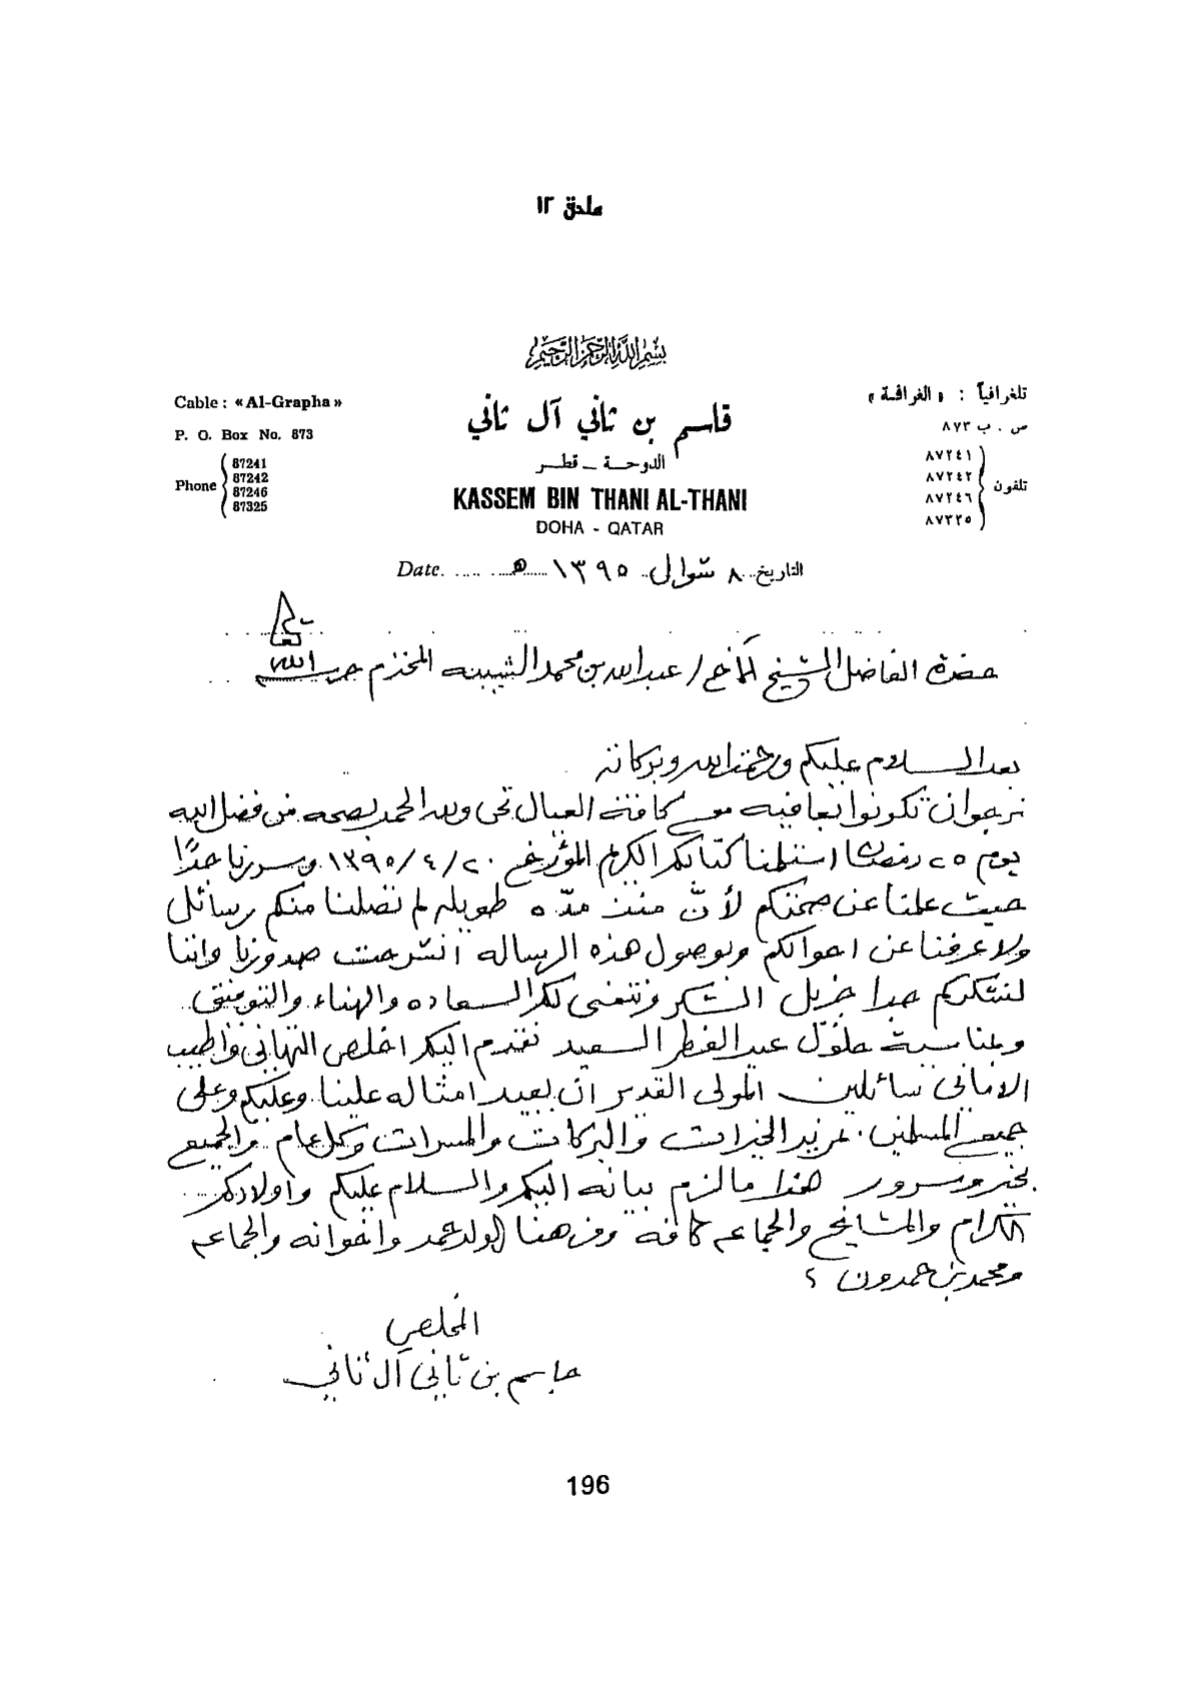 ملحق ١٢
بسم الله الرحمن الرحيم
Cable : «Al-Grapha»
P. O. Box No. 873
Phone
87241
87242
87246
87325
قاسم بن ثاني آل ثاني
الدوحة ـ قطر
KASSEM BIN THANI AL-THANI
DOHA - QATAR
تلغرافياً : « الغرافة »
ص . ب ٨٧٣
تلفون
٨٧٢٤١
٨٧٢٤٢
٨٧٢٤٦
٨٧٣٢٥
التاريخ ٨ شوال ١٣٩٥ هـ Date
حضرة الفاضل الشيخ الأخ / عبدالله بن محمد الشبينه المحترم حرسه الله تعالى
بعد السلام عليكم ورحمة الله وبركاته
نرجوا ان تكونوا بعافيه مع كافة العيال نحن ولله الحمد بصحه من فضل الله
يوم ٢٥ رمضان استلمنا كتابكم الكريم المؤرخ ٢٠ / ٤ / ١٣٩٥ وسررنا جداً
حيث علمنا عن صحتكم لأنّ منذ مدّه طويله لم تصلنا منكم رسائل
ولا عرفنا عن احوالكم وبوصول هذه الرساله انشرحت صدورنا واننا
لنشكركم جدا جزيل الشكر ونتمنى لكم السعاده والهناء والتوفيق
وبمناسبة حلول عيد الفطر السعيد نقدم اليكم اخلص التهاني واطيب
الاماني سائلين المولى القدير ان يعيد امثاله علينا وعليكم وعلى
جميع المسلمين بمزيد الخيرات والبركات والمسرات وكل عام والجميع
بخير وسرور هذا مالزم بيانه اليكم والسلام عليكم واولادكم
الكرام والمشايخ والجماعه كافه ومن هنا الولد حمد واخوانه والجماعه
ومحمد بن حمدون ؟
المخلص
جاسم بن ثاني آل ثاني
196